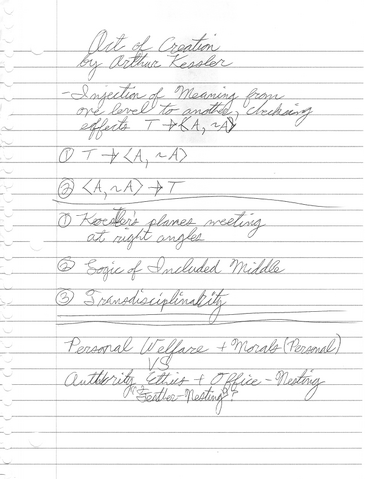 Art of Creation
by Arthur Kessler
- Injection of Meaning from
one level to another, checking
effects T → ⟨A, ~A⟩
① T → ⟨A, ~A⟩
② ⟨A, ~A⟩ → T
① Koestler's planes meeting
at right angles
② Logic of Included Middle
③ Transdisciplinality
Personal Welfare + Morals (Personal)
VS
Authority Ethics + Office - Nesting
"Feather-Nesting"?